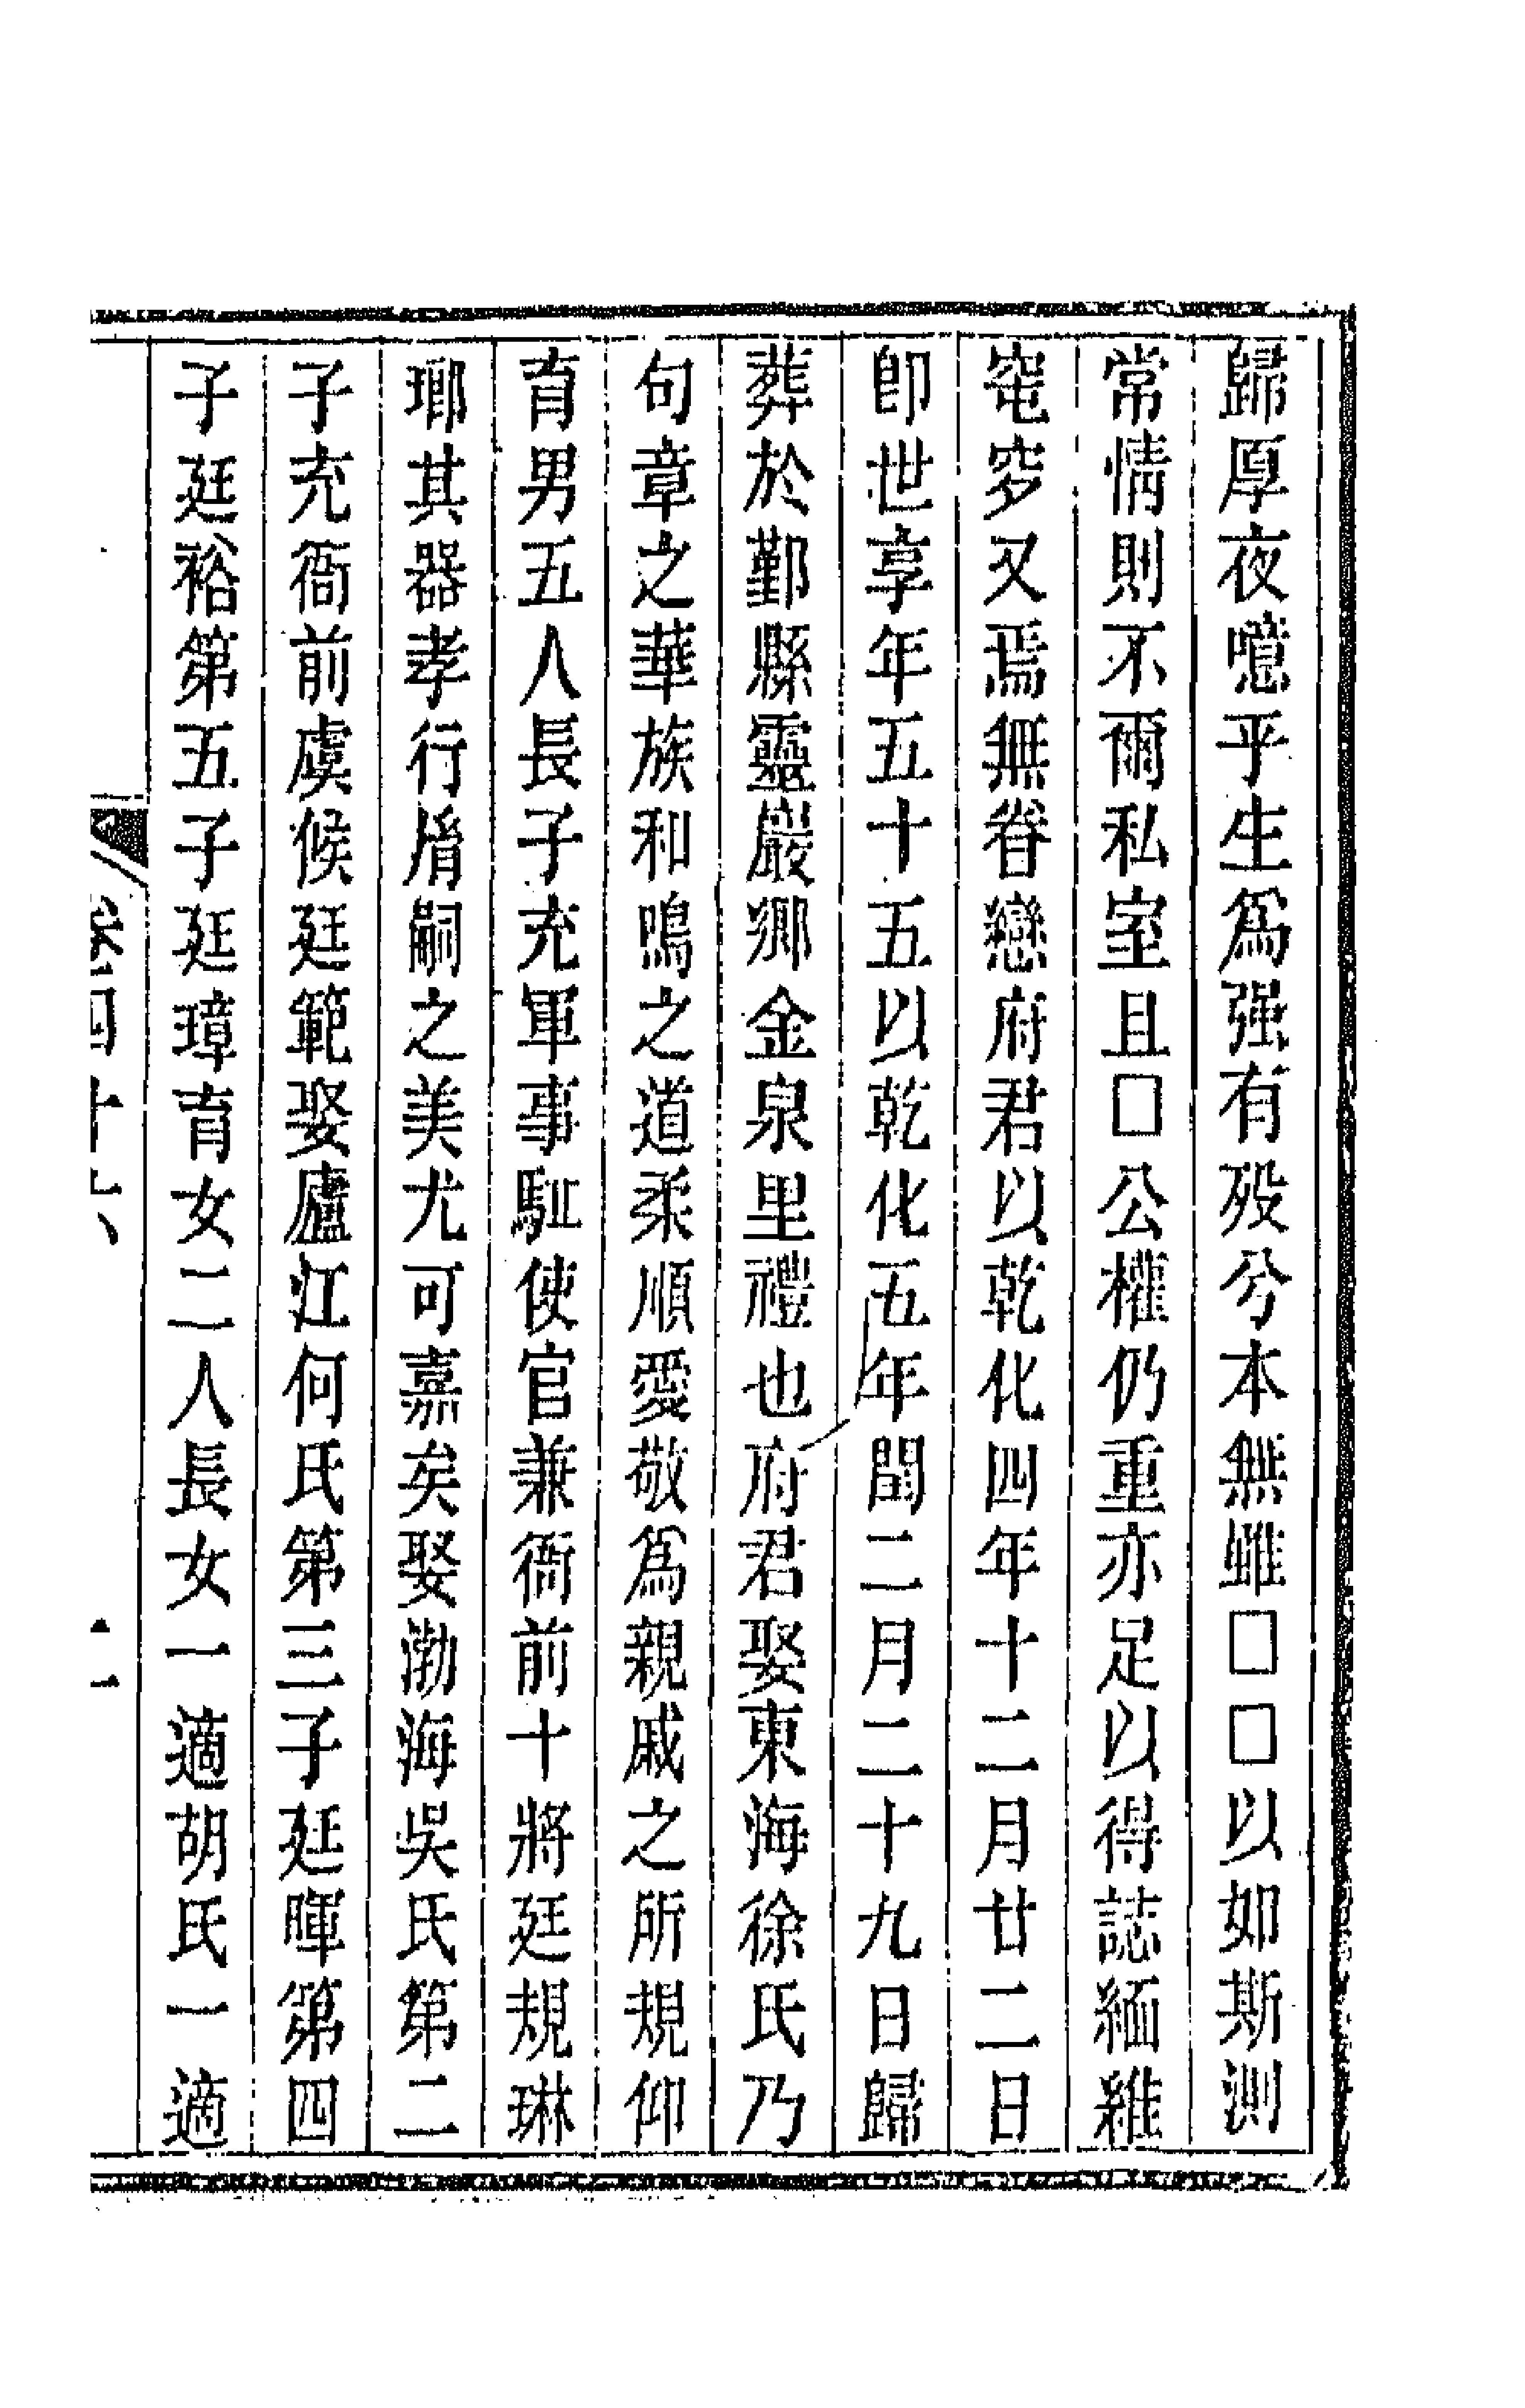 歸厚夜噫乎生爲强有歿兮本無雖□□以如斯測
常情則不爾私室且□公權仍重亦足以得誌緬維
窀穸又焉無眷戀府君以乾化四年十二月廿二日
卽世享年五十五以乾化五年閏二月二十九日歸
葬於鄞縣靈巖鄉金泉里禮也府君娶東海徐氏乃
句章之華族和鳴之道柔順愛敬爲親戚之所規仰
育男五人長子充軍事駈使官兼衙前十將廷規琳
瑯其器孝行脩嗣之美尤可嘉矣娶渤海吳氏第二
子充衙前虞候廷範娶廬江何氏第三子廷暉第四
子廷裕第五子廷璋育女二人長女一適胡氏一適
卷四十六